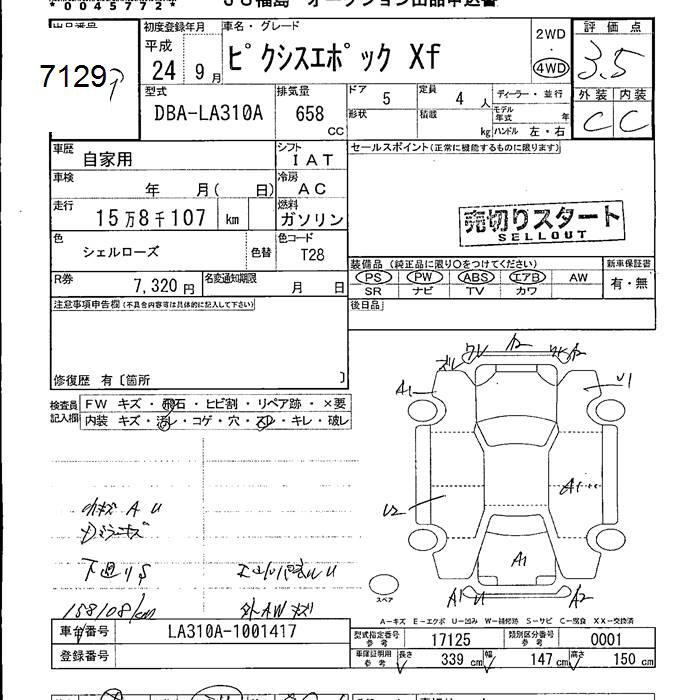 * 0 0 4 5 7 7 2 *
ＪＵ福島 オークション出品申込書
出品番号
7129
初度登録年月
平成
24 9月
車名・グレード
ピクシスエポック Xf
2WD
4WD
評価点
3.5
型式
DBA-LA310A
排気量
658
CC
ドア
5
定員
4 人
ディーラー・並行
外装 内装
C C
形状
積載
kg
モデル年式
年
ハンドル 左・右
車歴
自家用
シフト
IAT
セールスポイント(正常に機能するものに限ります)
車検
年 月( 日)
冷房
AC
走行
15万8千107 km
燃料
ガソリン
売切りスタート
SELLOUT
色
シェルローズ
色替
色コード
T28
装備品(純正品に限り○をつけてください)
新車保証書
PS PW ABS エアB AW
有・無
SR ナビ TV カワ
R券
7,320 円
名変通知期限
月 日
後日品
注意事項申告欄(不具合内容等は具体的に記入して下さい)
修復歴 有〔箇所 〕
検査員記入欄
FW キズ・飛石・ヒビ割・リペア跡・×要
内装 キズ・汚レ・コゲ・穴・スレ・キレ・破レ
A2
A1
U1
小キズ A U
U2
A1
ドラミラーキズ
下廻りS
A1
スペア
158108km
外AWキズ
A1 U
A2
A－キズ E－エクボ U－凹み W－補修跡 S－サビ C－腐食 XX－交換済
車台番号
LA310A-1001417
型式指定番号
参考
17125
類別区分番号
参考
0001
登録番号
車庫証明用
参考
長さ
339 cm
幅
147 cm
高さ
150 cm